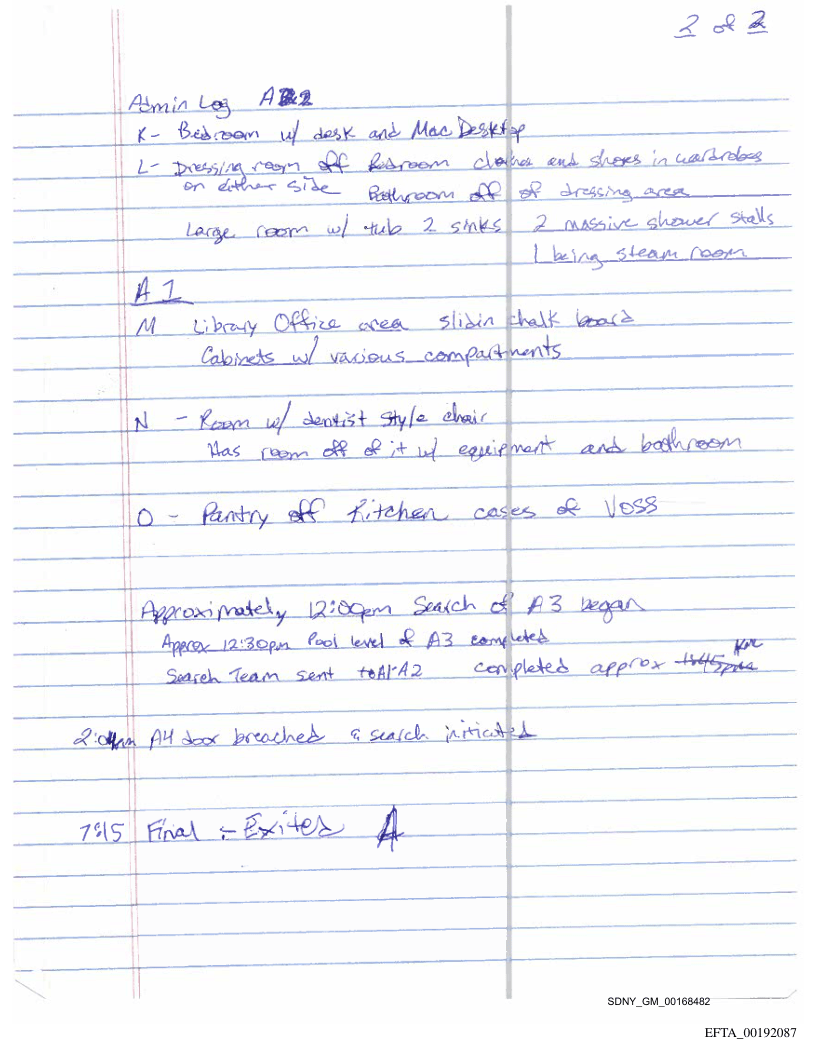 2 of 2
Admin Log A2
K- Bedroom w/ desk and Mac Desktop
L- Dressing room off Bedroom clothes and shoes in wardrobes
on either side Bathroom off of dressing area
Large room w/ tub 2 sinks 2 massive shower stalls
1 being steam room
A 1
M Library Office area slidin chalk board
Cabinets w/ various compartments
N - Room w/ dentist style chair
Has room off of it w/ equipment and bathroom
O - Pantry off Kitchen cases of VOSS
Approximately 12:00pm Search of A3 began
Approx 12:30pm Pool level of A3 completed
Search Team sent to A1-A2 completed approx
A4 door breached & search initiated
7:15 Final - Exited A
SDNY_GM_00168482
EFTA_00192087